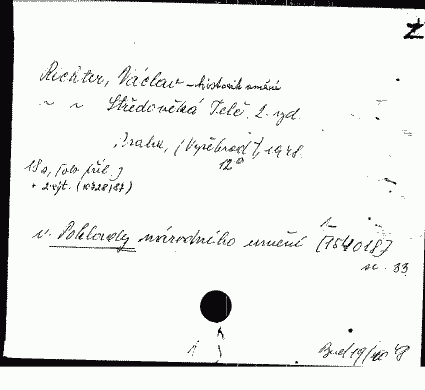 Z
Richter, Václav - historik umění
~ ~ Středověká Telč. 2. vyd.
Praha, (Vyšehrad), 1948.
12°
18 s, [ob. příl.]
+ 2 výt. (
v. Poklady národního umění [154018]
sv. 33
1